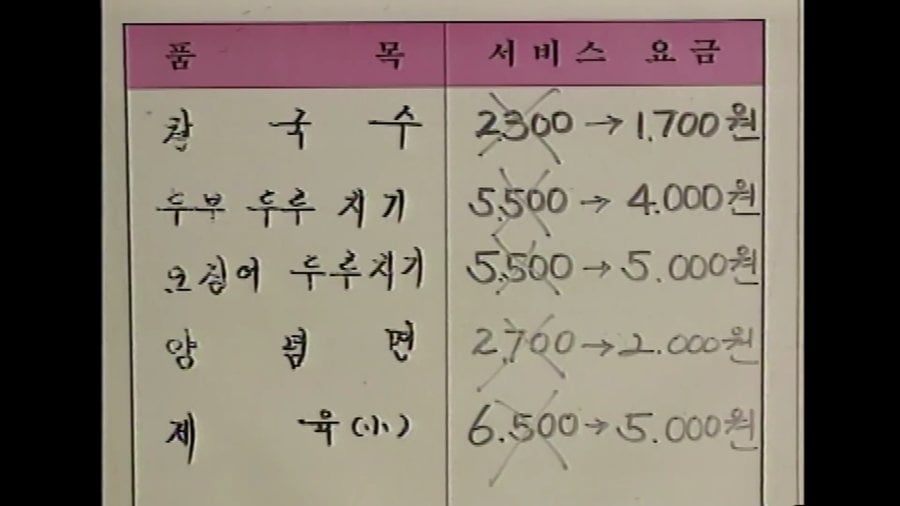 품 목 서비스 요금
칼국수 2300 → 1.700원
두부 두루치기 5.500 → 4.000원
오징어 두루치기 5.500 → 5.000원
양념면 2,700 → 2.000원
제육(小) 6.500 → 5.000원